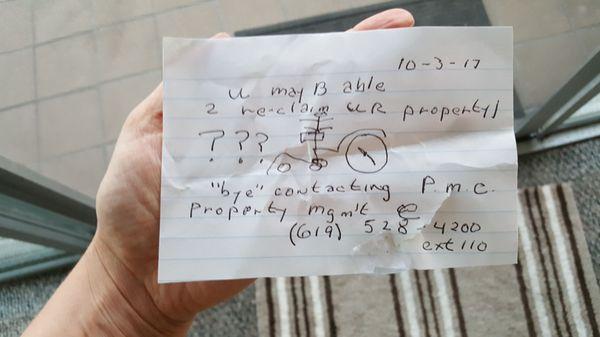 10-3-17
U may B able
2 re-claim UR property;
???
"bye" contacting P.M.C.
Property mgm't @
(619) 528-4200
ext 110